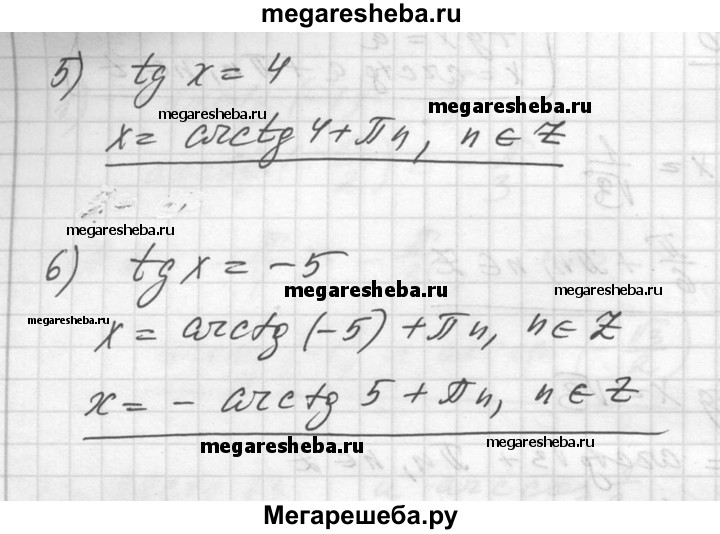 megaresheba.ru
5) tg x = 4
megaresheba.ru megaresheba.ru
x = arctg 4 + πn, n ∈ Z
megaresheba.ru
6) tg x = -5
megaresheba.ru megaresheba.ru
megaresheba.ru
x = arctg (-5) + πn, n ∈ Z
x = - arctg 5 + πn, n ∈ Z
megaresheba.ru megaresheba.ru
Мегарешеба.ру